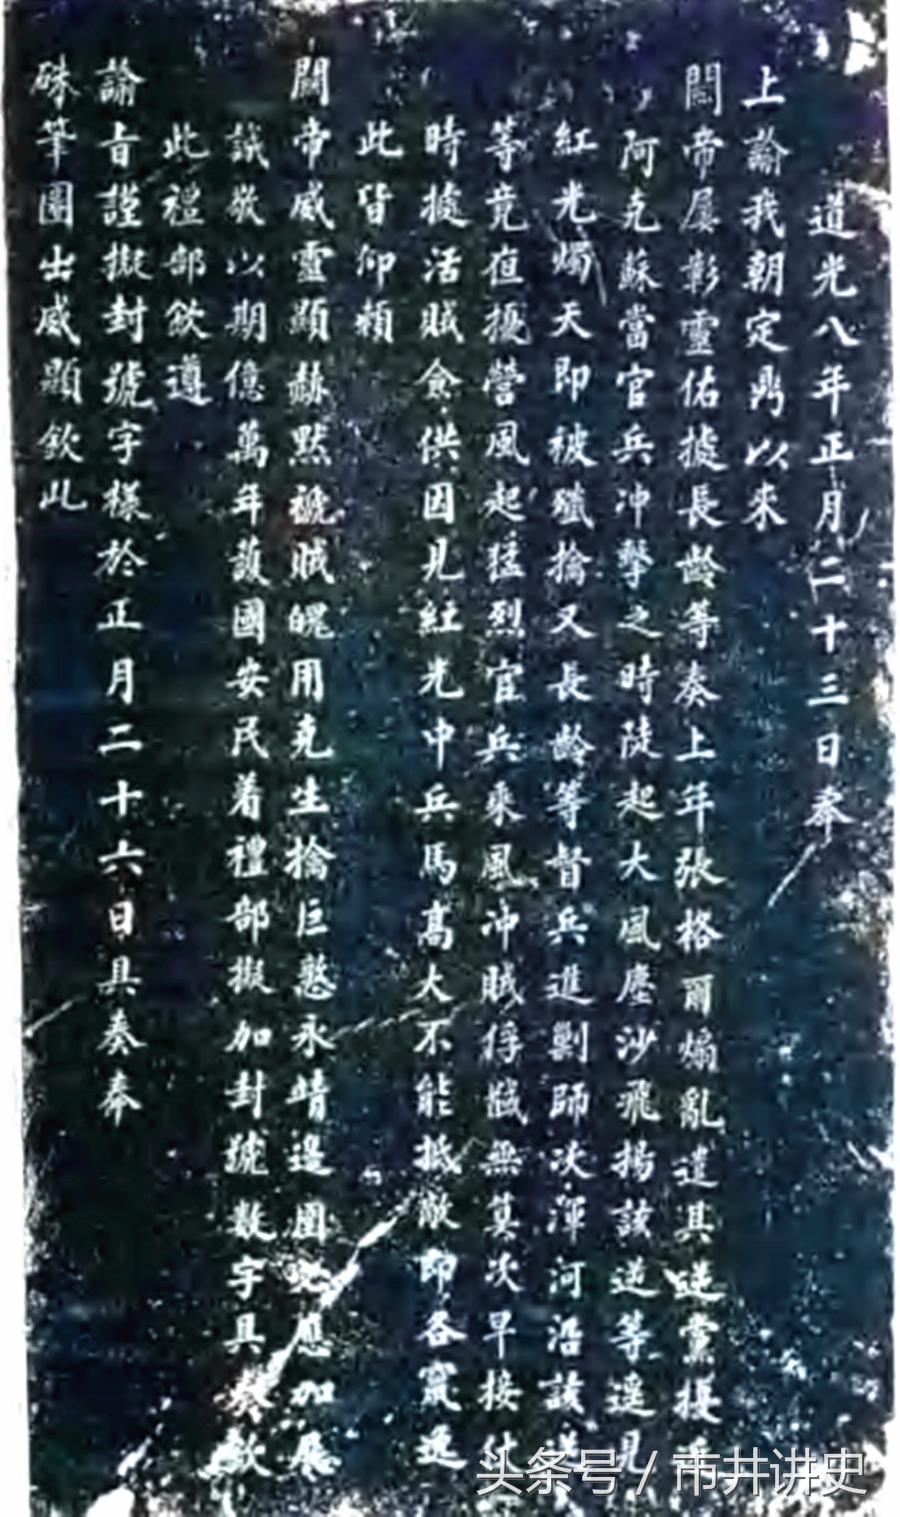 道光八年正月二十三日奉
上諭我朝定鼎以來
關帝屢彰靈佑據長齡等奏上年張格爾煽亂遣其逆黨撲
阿克蘇當官兵冲擊之時陡起大風塵沙飛揚該逆等遥見
紅光燭天即被殲擒又長齡等督兵進剿師次渾河沿該逆
等竟夜擾營風起猛烈官兵乘風冲賊俘馘無算次早接仗
時據活賊僉供因見紅光中兵馬高大不能抵敵即各竄逸
此皆仰賴
關帝威靈顯赫默褫賊魄用克生擒巨憝永靖邊圉 應加展
誠敬以期億萬年護國安民着禮部擬加封號數字具奏欽
此禮部欽遵
諭旨謹擬封號字樣於正月二十六日具奏奉
硃筆圈出威顯欽此
头条号 / 市井讲史